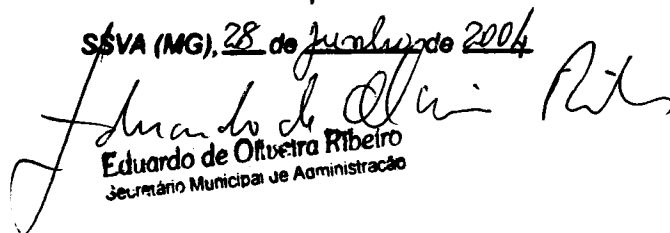 SSVA (MG), 28 de Junho de 2004
Eduardo de Oliveira Ribeiro
Eduardo de Oliveira Ribeiro
Secretário Municipal de Administração